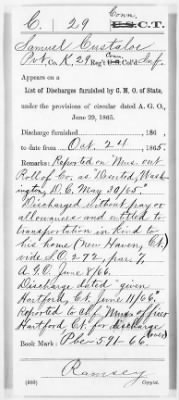 C. 29 Conn. U.S.C.T.
Samuel Custaloe
Pvt, Co. K, 29 Reg't Conn. Col'd Inf.
Appears on a
List of Discharges furnished by C. M. O. of State,
under the provisions of circular dated A. G. O.,
June 29, 1865.
Discharge furnished 186 ,
to date from Oct. 24 1865.
Remarks: Reported on M. out
Roll of Co. as "Deserted, Wash-
ington, D. C. May 30/65."
Discharged without pay or
allowances and entitled to
transportation in kind to
his home (New Haven, Ct.)
vide S.O. 272, par. 7,
A.G.O. June 8/66.
Discharge dated "given
Hartford, Ct. June 11/66."
Reported to Chf. Mus. officer
Hartford, Ct. for discharge
Book Mark: 591-66.
Ramsey
Copyist.